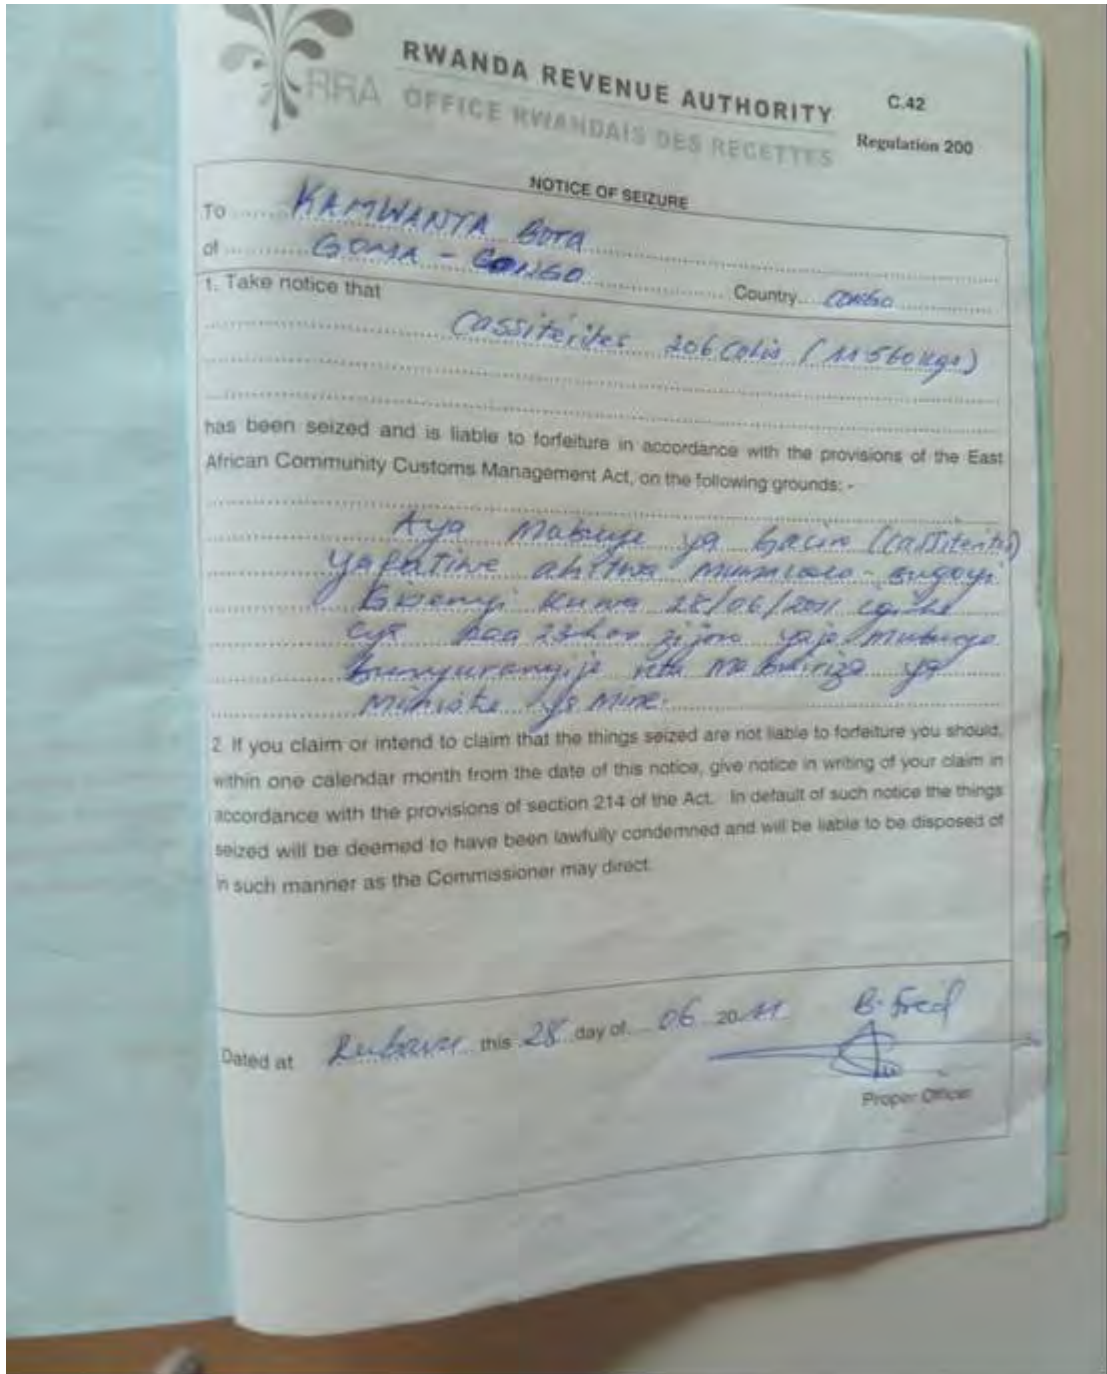 RRA
RWANDA REVENUE AUTHORITY
OFFICE RWANDAIS DES RECETTES
C.42
Regulation 200
NOTICE OF SEIZURE
To KAMWANTA Bora
of GOMA - CONGO Country Congo
1. Take notice that
Cassitérites 206 Colis (11560kgs)
has been seized and is liable to forfeiture in accordance with the provisions of the East
African Community Customs Management Act, on the following grounds: -
Aya mabuye ya (Cassiterites)
yafatiwe ahitwa
kuwa 28/06/2011 igihe
23h00 z'ijoro yaje muburyo
bunyuranyije ya
ya Mine.
2. If you claim or intend to claim that the things seized are not liable to forfeiture you should,
within one calendar month from the date of this notice, give notice in writing of your claim in
accordance with the provisions of section 214 of the Act. In default of such notice the things
seized will be deemed to have been lawfully condemned and will be liable to be disposed of
in such manner as the Commissioner may direct.
B. Fred
Dated at Rubavu this 28 day of 06 2011
Proper Officer